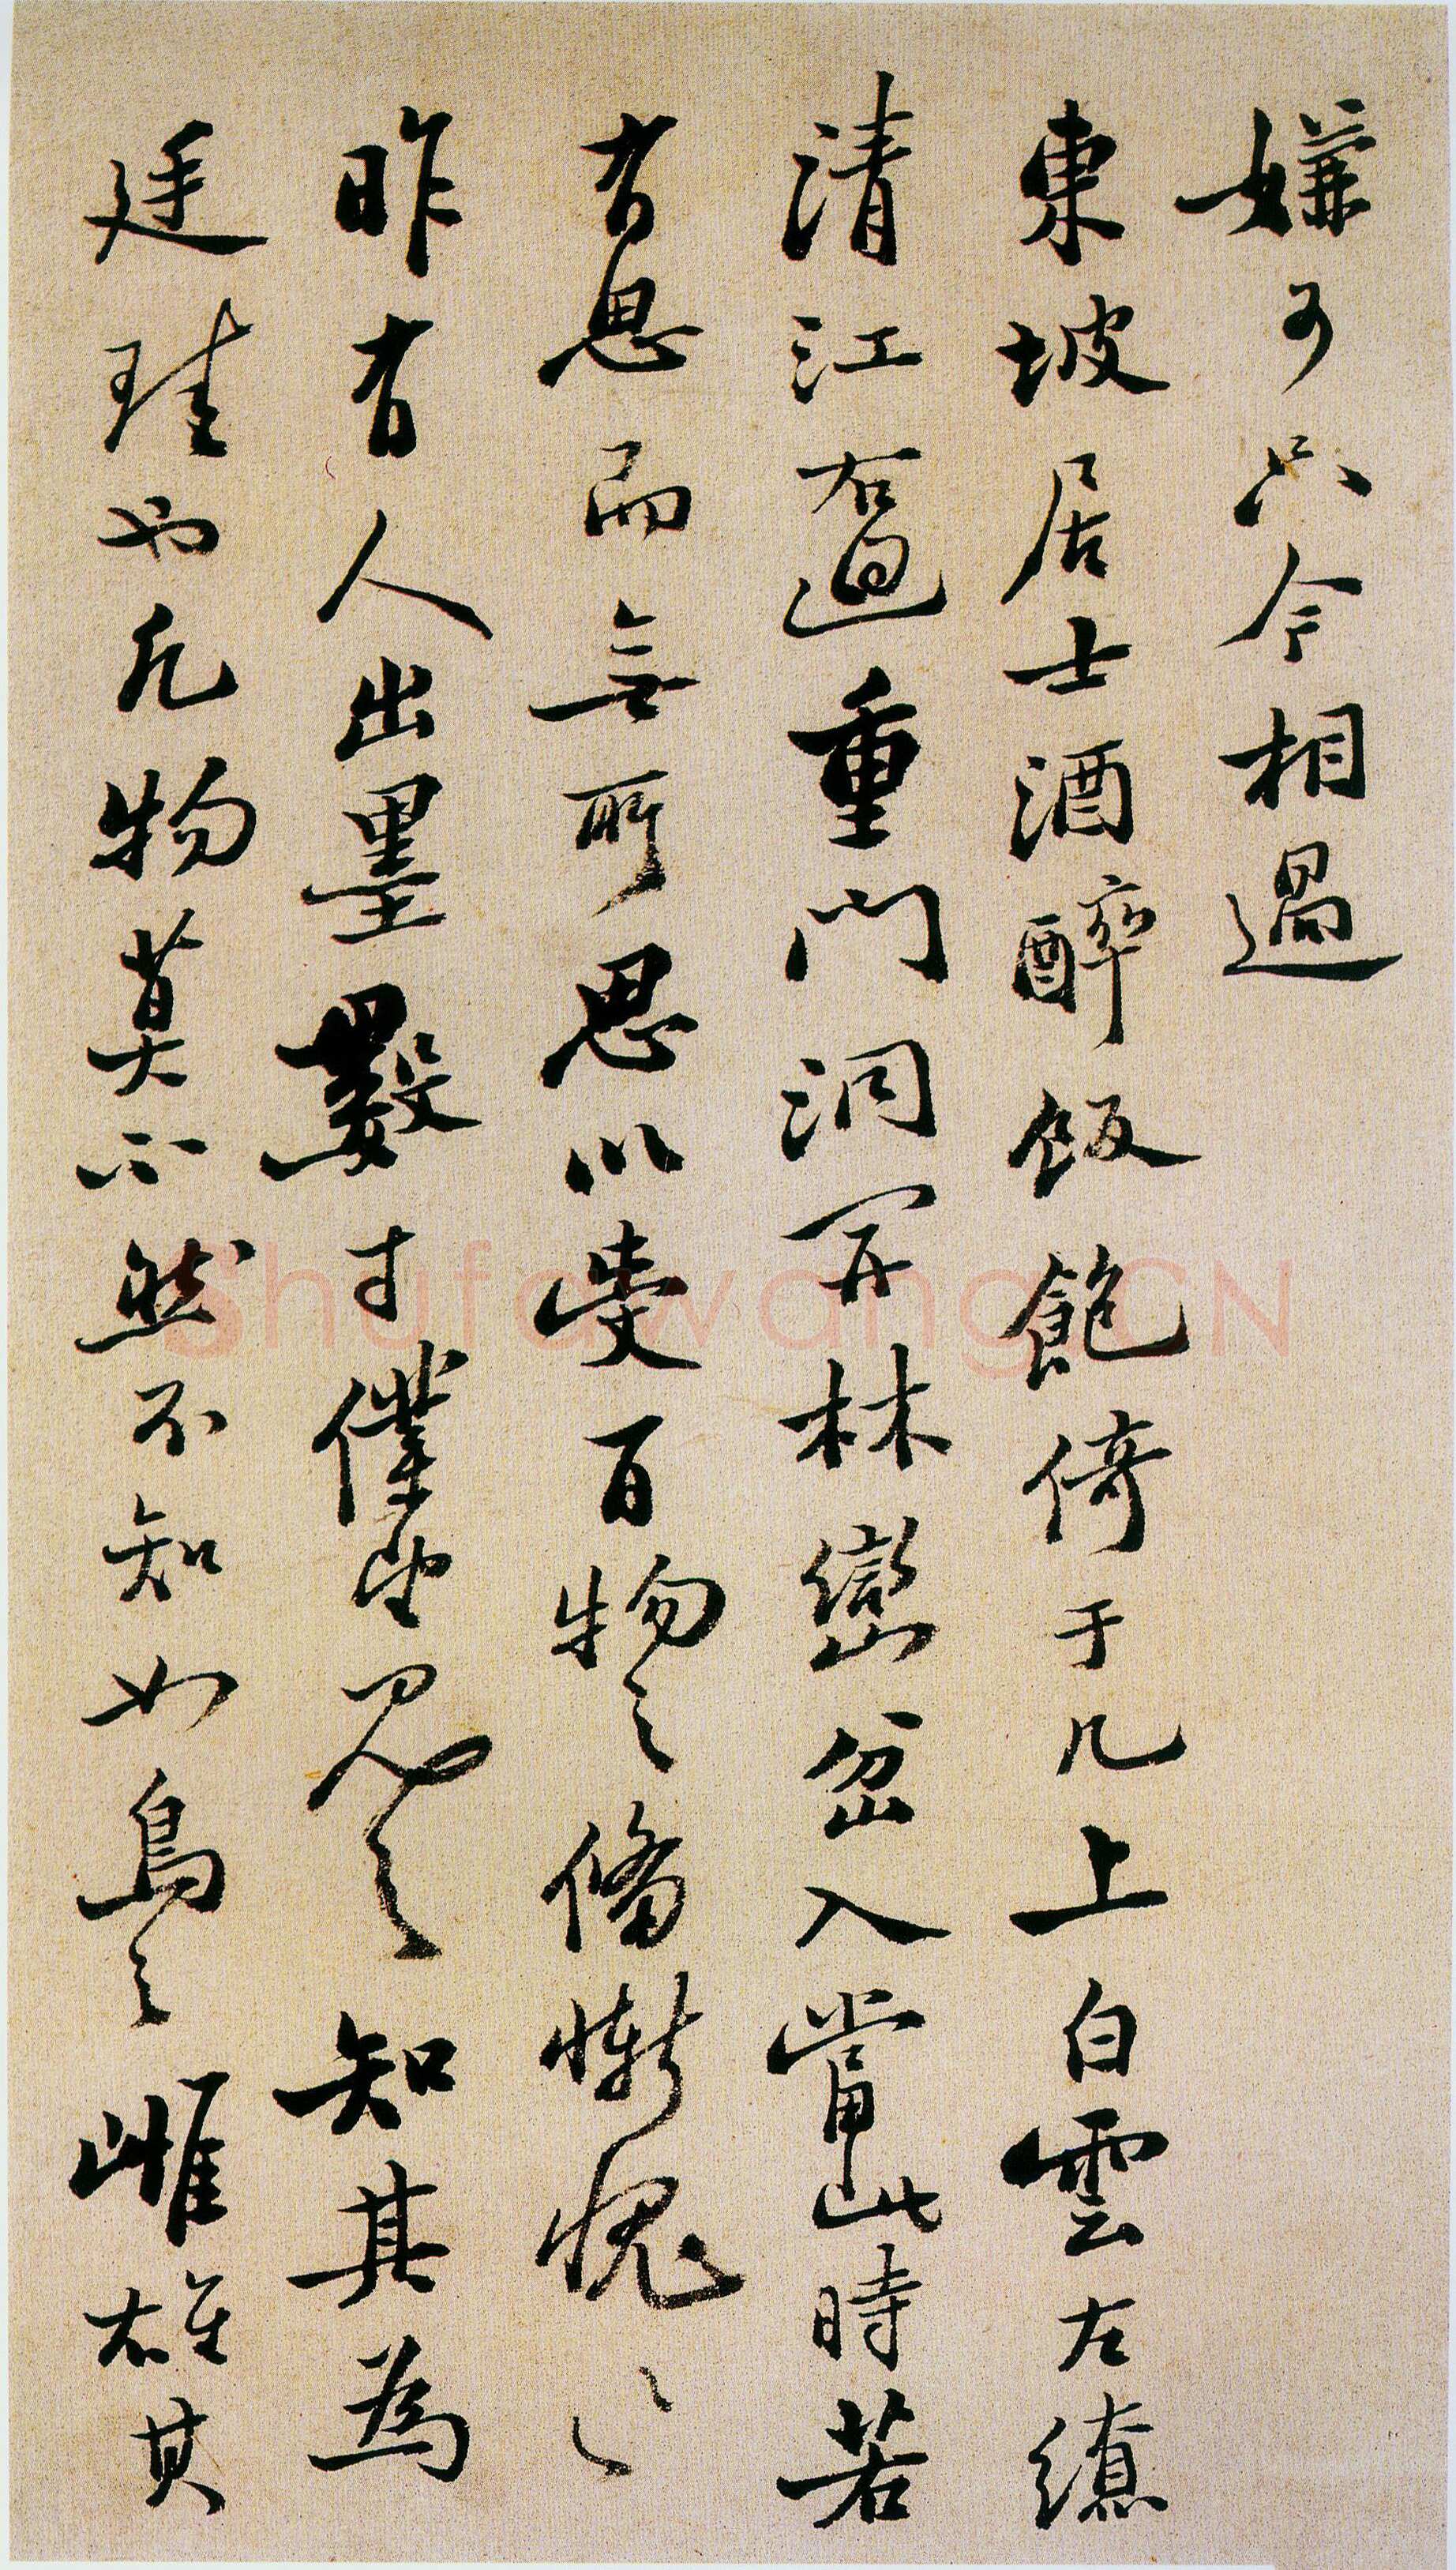 嫌可只今相過
東坡居士酒醉飯飽倚于几上白雲左繚
清江右迴重門洞開林巒岔入當此時若
有思而無所思以受百物之備慚愧〻
昨有人出墨數寸僕望見之知其為
廷珪也凡物莫不然不知如烏之雌雄其
Shufawang.CN